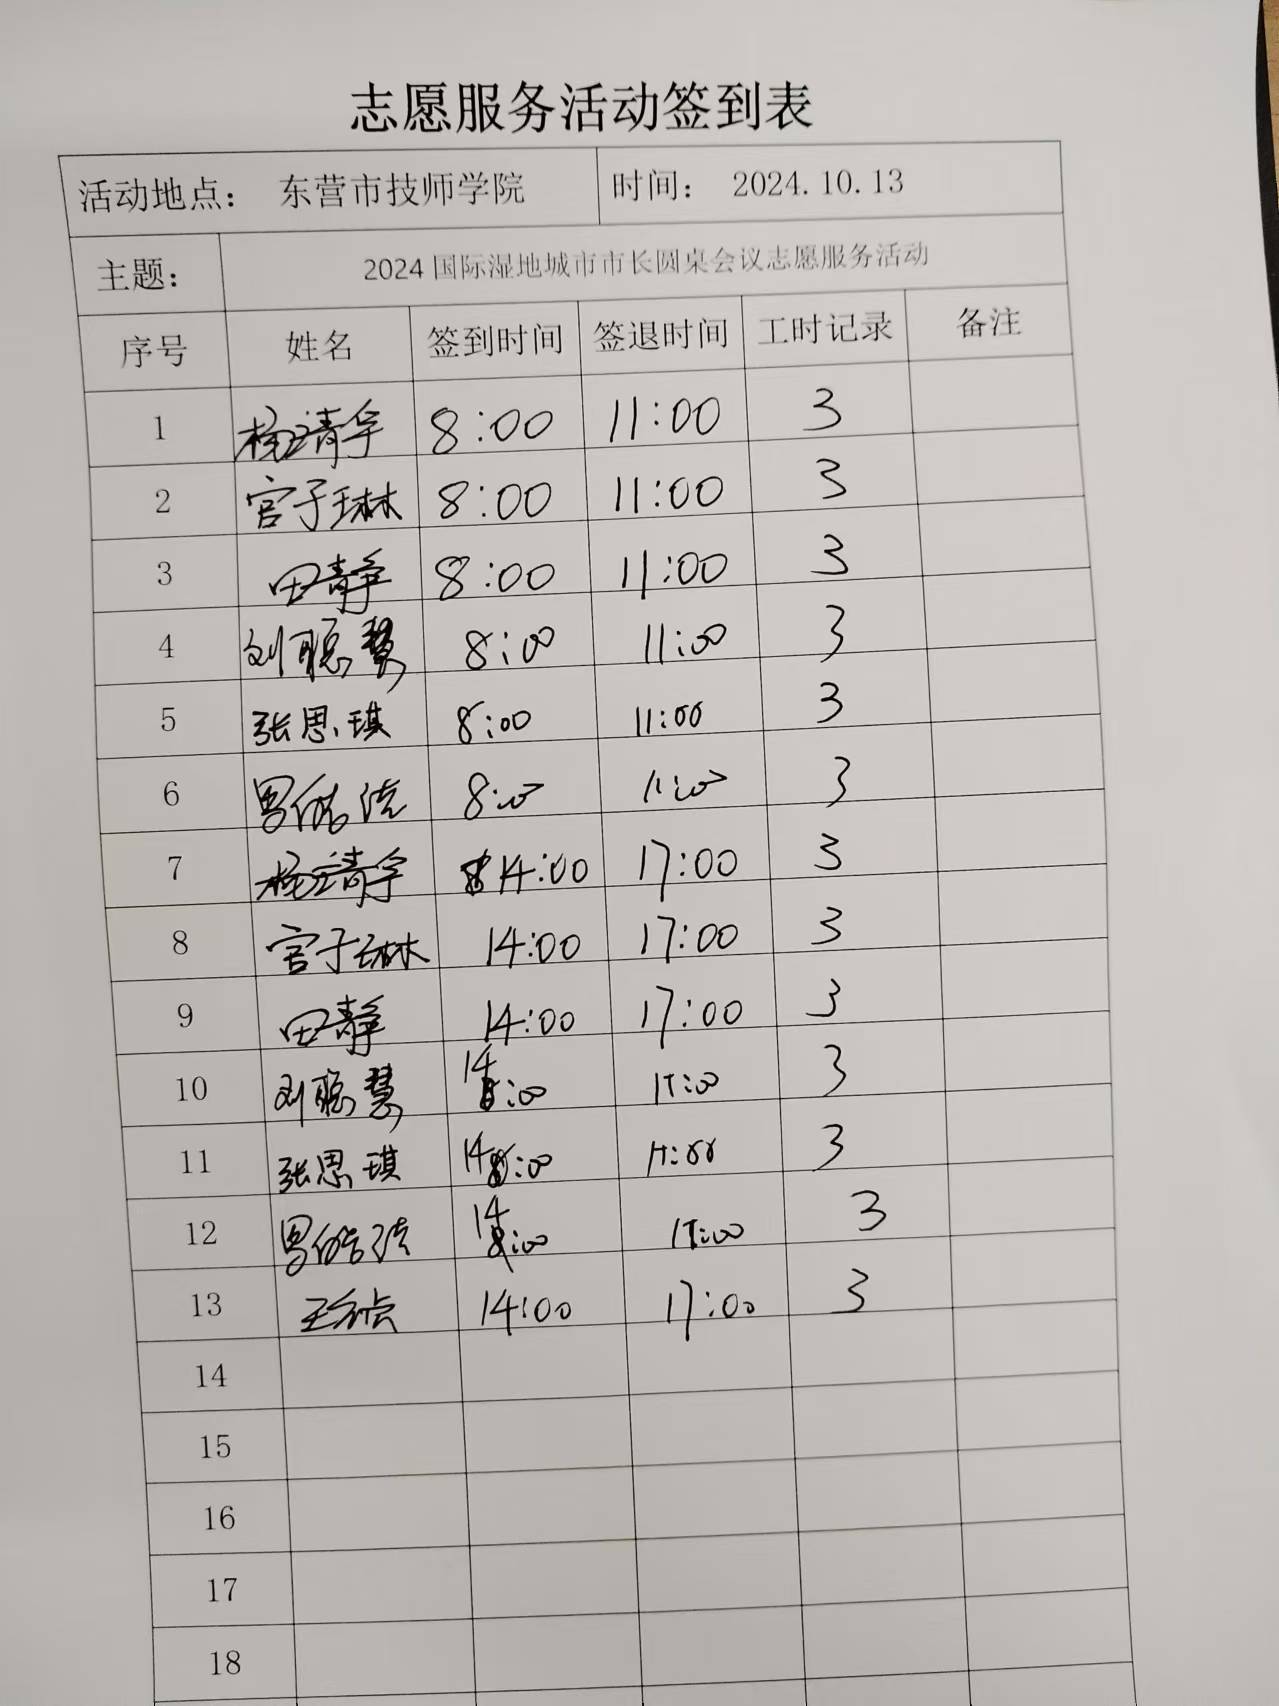 志愿服务活动签到表
活动地点： 东营市技师学院 时间： 2024.10.13
主题： 2024国际湿地城市市长圆桌会议志愿服务活动
序号 姓名 签到时间 签退时间 工时记录 备注
1 杨靖宇 8:00 11:00 3
2 宫子琳 8:00 11:00 3
3 田静 8:00 11:00 3
4 刘聪慧 8:00 11:00 3
5 张思琪 8:00 11:00 3
6 8:00 11:00 3
7 杨靖宇 14:00 17:00 3
8 宫子琳 14:00 17:00 3
9 田静 14:00 17:00 3
10 刘聪慧 14:00 17:00 3
11 张思琪 14:00 17:00 3
12 14:00 17:00 3
13 14:00 17:00 3
14
15
16
17
18